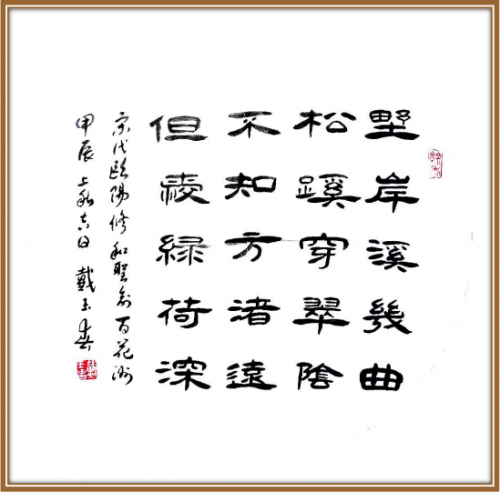 野岸溪幾曲
松蹊穿翠陰
不知方渚遠
但綠荷深
宋代歐陽修和聖俞百花洲
甲辰上秋吉日戴玉春